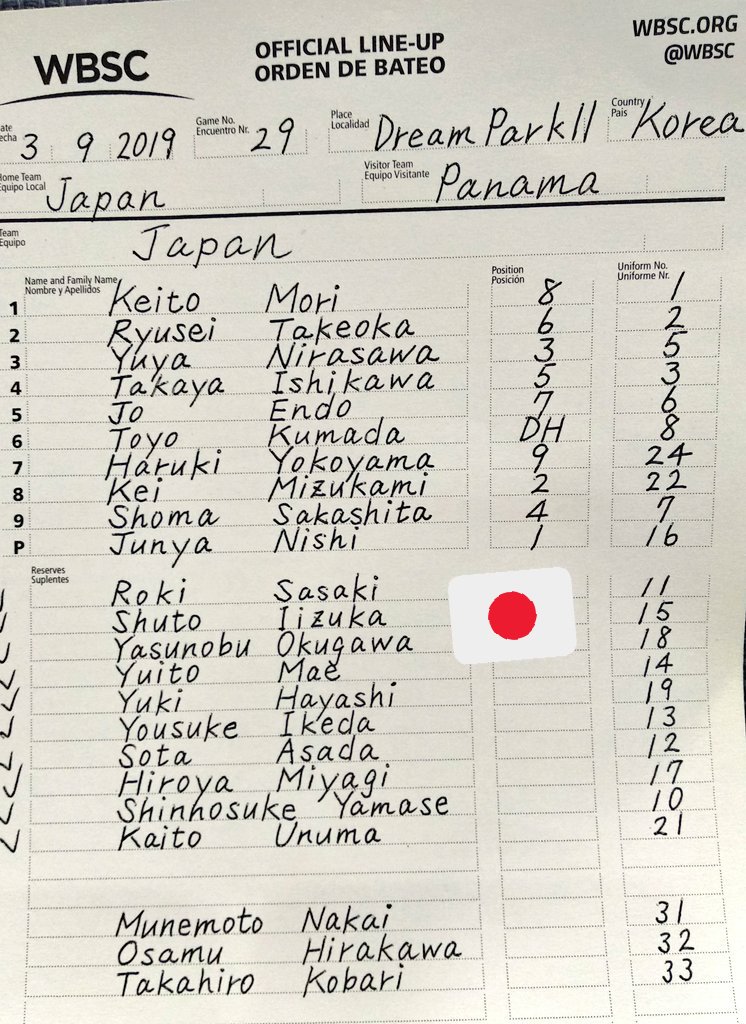 WBSC
OFFICIAL LINE-UP
ORDEN DE BATEO
WBSC.ORG
@WBSC
ate
echa 3 9 2019
Game No.
Encuentro Nr. 29
Place
Localidad Dream Park II
Country
Pais Korea
Home Team
Equipo Local Japan
Visitor Team
Equipo Visitante Panama
Team
Equipo Japan
Name and Family Name
Nombre y Apellidos
Position
Posición
Uniform No.
Uniforme Nr.
1 Keito Mori 8 1
2 Ryusei Takeoka 6 2
3 Yuya Nirasawa 3 5
4 Takaya Ishikawa 5 3
5 Jo Endo 7 6
6 Toyo Kumada DH 8
7 Haruki Yokoyama 9 24
8 Kei Mizukami 2 22
9 Shoma Sakashita 4 7
P Junya Nishi 1 16
Reserves
Suplentes
Roki Sasaki 11
Shuto Iizuka 15
Yasunobu Okugawa 18
Yuito Mae 14
Yuki Hayashi 19
Yousuke Ikeda 13
Sota Asada 12
Hiroya Miyagi 17
Shinnosuke Yamase 10
Kaito Unuma 21
Munemoto Nakai 31
Osamu Hirakawa 32
Takahiro Kobari 33